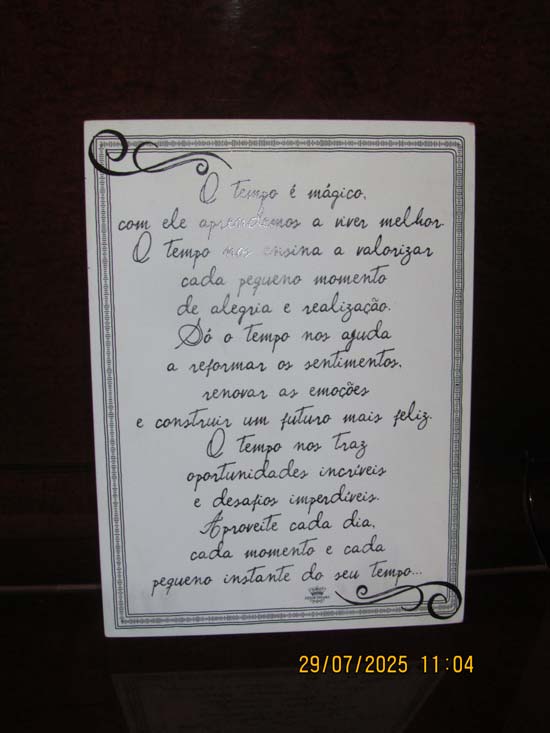 O tempo é mágico,
com ele aprendemos a viver melhor.
O tempo nos ensina a valorizar
cada pequeno momento
de alegria e realização.
Só o tempo nos ajuda
a reformar os sentimentos,
renovar as emoções
e construir um futuro mais feliz.
O tempo nos traz
oportunidades incríveis
e desafios imperdíveis.
Aproveite cada dia,
cada momento e cada
pequeno instante do seu tempo...
29/07/2025 11:04